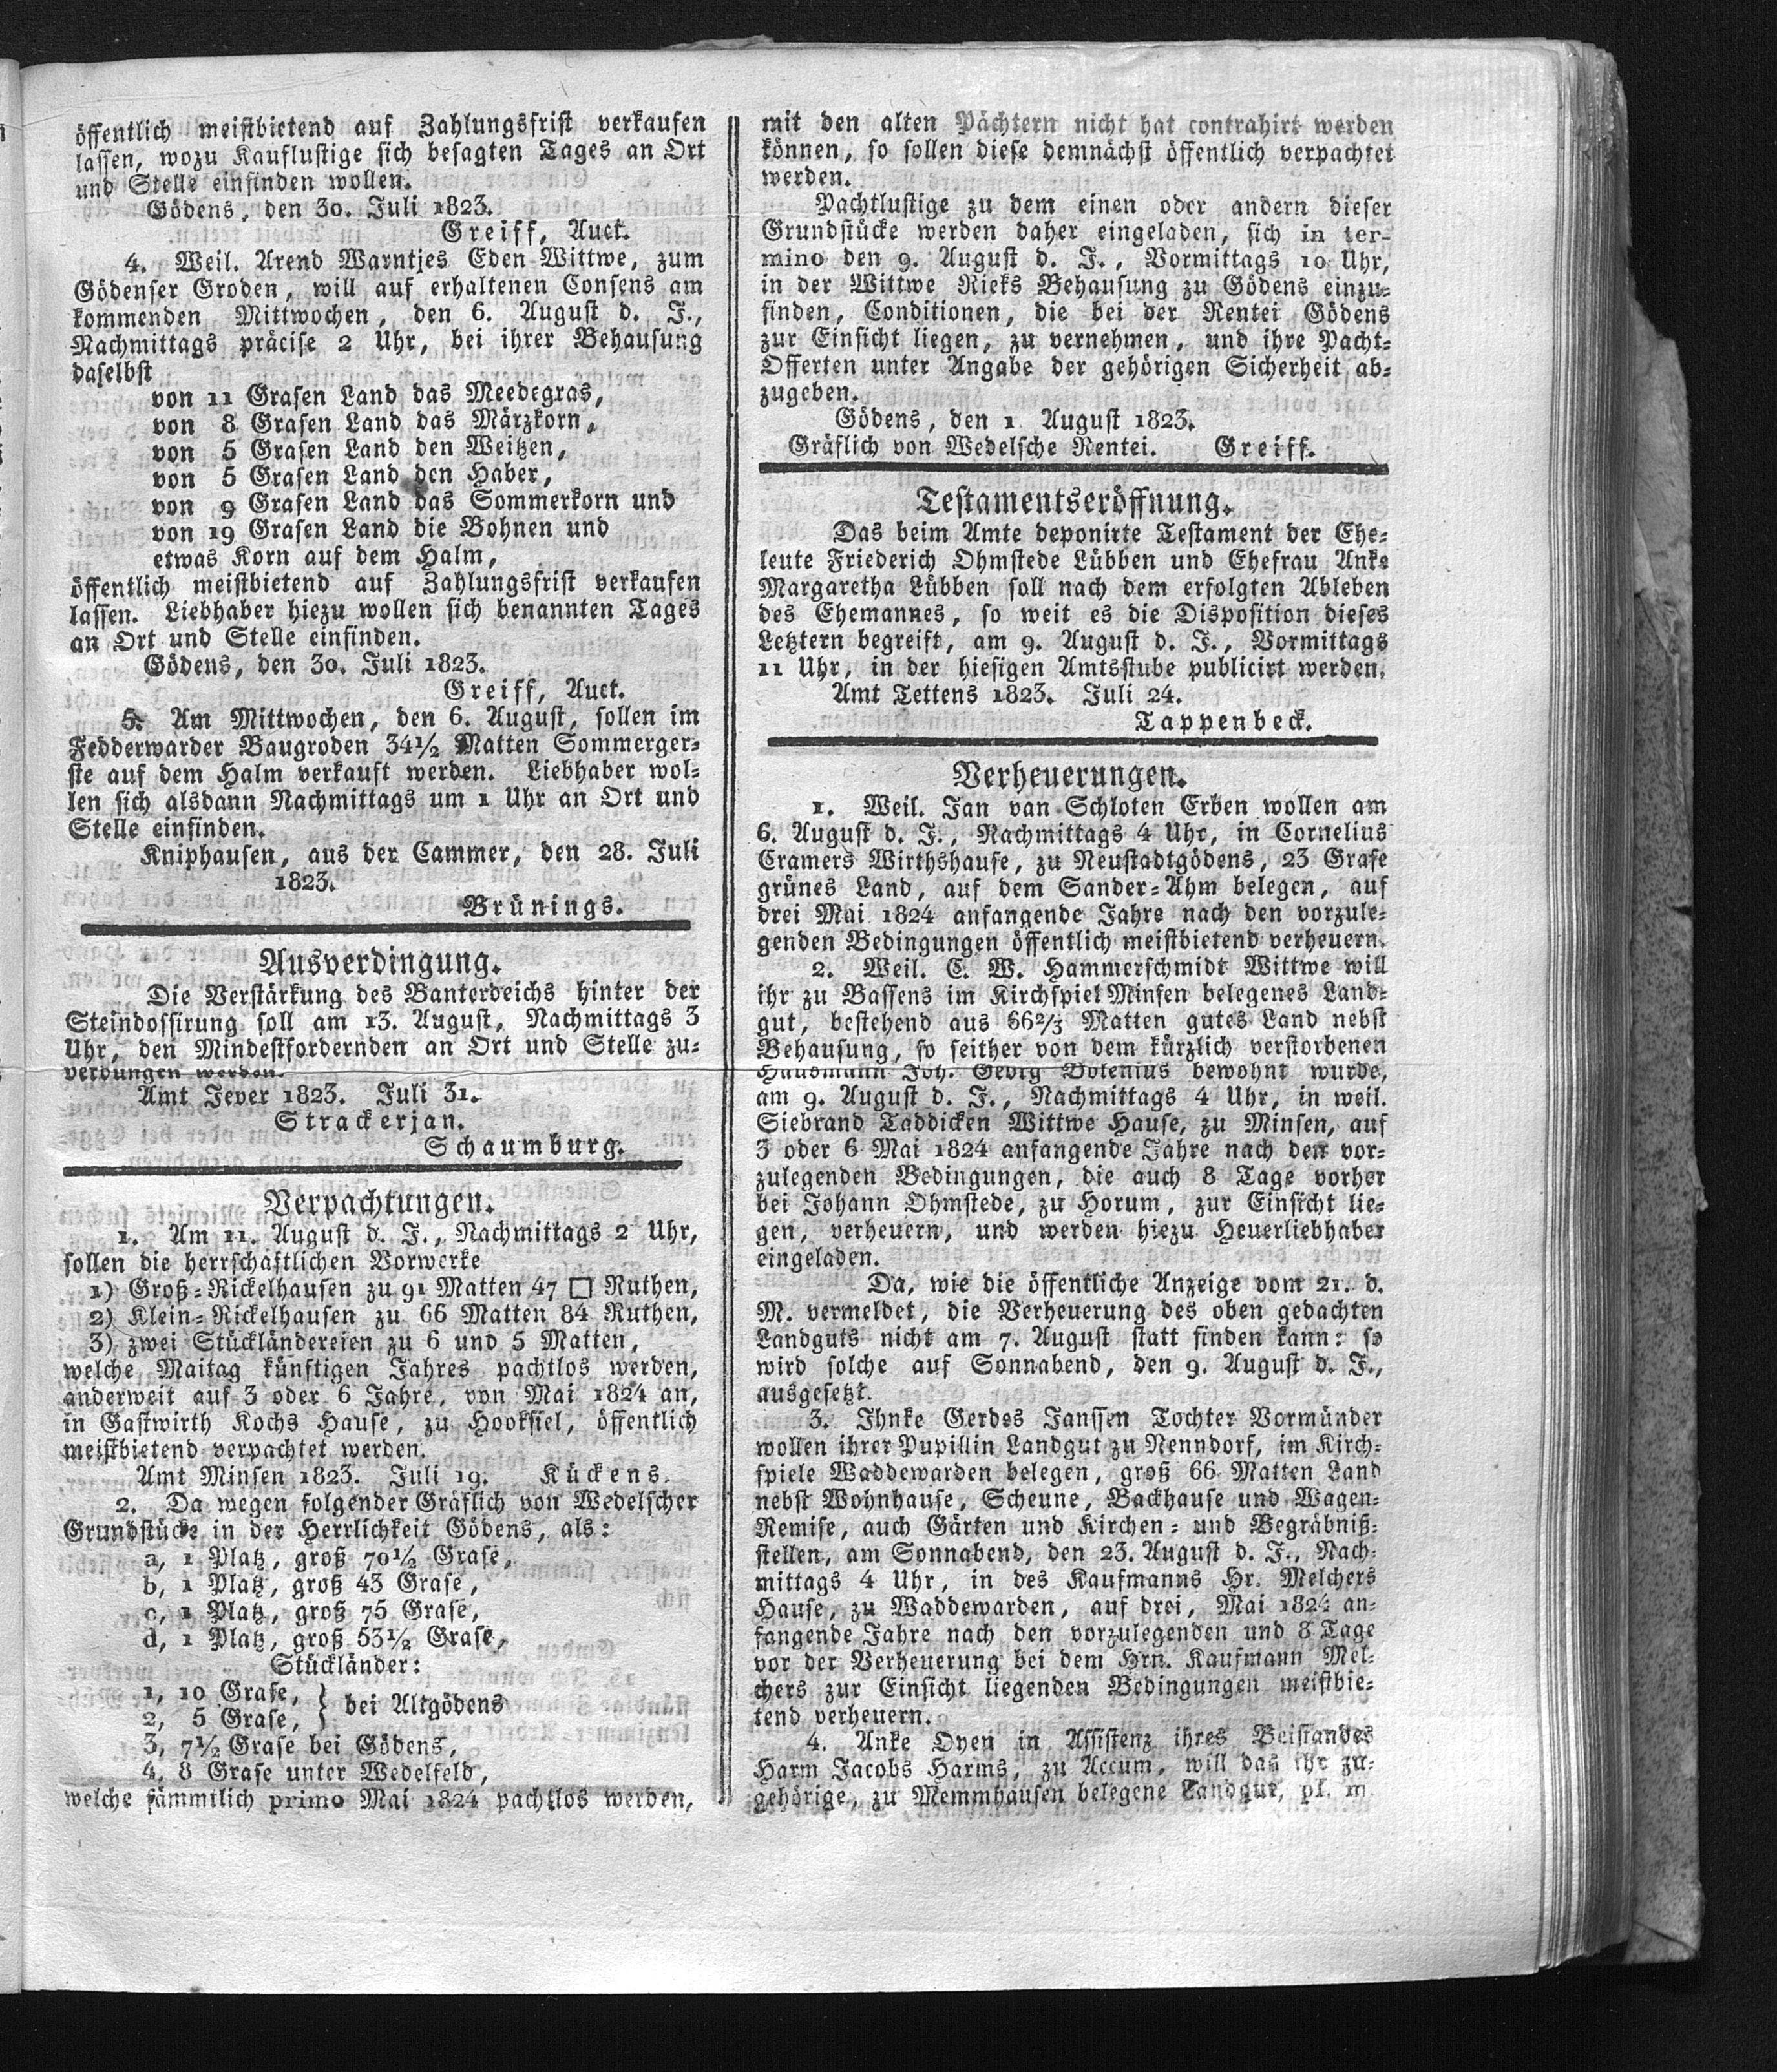 öffentlich meistbietend auf Zahlungsfrist verkaufen
lassen, wozu Kauflustige sich besagten Tages an Ort
und Stelle einfinden wollen.
Gödens, den 30. Juli 1823.
Greiff, Auct.
4. Weil. Arend Warntjes Eden Wittwe, zum
Gödenser Groden, will auf erhaltenen Consens am
kommenden Mittwochen, den 6. August d. J.,
Nachmittags präcise 2 Uhr, bei ihrer Behausung
daselbst
von 11 Grasen Land das Meedegras,
von 8 Grasen Land das Märzkorn,
von 5 Grasen Land den Weitzen,
von 5 Grasen Land den Haber,
von 9 Grasen Land das Sommerkorn und
von 19 Grasen Land die Bohnen und
etwas Korn auf dem Halm,
öffentlich meistbietend auf Zahlungsfrist verkaufen
lassen. Liebhaber hiezu wollen sich benannten Tages
an Ort und Stelle einfinden.
Gödens, den 30. Juli 1823.
Greiff, Auct.
5. Am Mittwochen, den 6. August, sollen im
Fedderwarder Baugroden 34½ Matten Sommerger-
ste auf dem Halm verkauft werden. Liebhaber wol-
len sich alsdann Nachmittags um 1 Uhr an Ort und
Stelle einfinden.
Kniphausen, aus der Cammer, den 28. Juli
1823.
Brünings.
Ausverdingung.
Die Verstärkung des Banterdeichs hinter der
Steindossirung soll am 13. August, Nachmittags 3
Uhr, den Mindestfordernden an Ort und Stelle zu-
verdungen werden.
Amt Jever 1823. Juli 31.
Strackerjan.
Schaumburg.
Verpachtungen.
1. Am 11. August d. J., Nachmittags 2 Uhr,
sollen die herrschaftlichen Vorwerke
1) Groß-Rickelhausen zu 91 Matten 47 □ Ruthen,
2) Klein-Rickelhausen zu 66 Matten 84 Ruthen,
3) zwei Stückländereien zu 6 und 5 Matten,
welche Maitag künftigen Jahres pachtlos werden,
anderweit auf 3 oder 6 Jahre, von Mai 1824 an,
in Gastwirth Kochs Hause, zu Hooksiel, öffentlich
meistbietend verpachtet werden.
Amt Minsen 1823. Juli 19. Kückens.
2. Da wegen folgender Gräflich von Wedelscher
Grundstücke in der Herrlichkeit Gödens, als:
a, 1 Platz, groß 70½ Grase,
b, 1 Platz, groß 43 Grase,
c, 1 Platz, groß 75 Grase,
d, 1 Platz, groß 53½ Grase,
Stückländer:
1, 10 Grase, } bei Altgödens
2, 5 Grase,
3, 7½ Grase bei Gödens,
4, 8 Grase unter Wedelfeld,
welche sämmtlich primo Mai 1824 pachtlos werden,
mit den alten Pächtern nicht hat contrahirt werden
können, so sollen diese demnächst öffentlich verpachtet
werden.
Pachtlustige zu dem einen oder andern dieser
Grundstücke werden daher eingeladen, sich in ter-
mino den 9. August d. J., Vormittags 10 Uhr,
in der Wittwe Rieks Behausung zu Gödens einzu-
finden, Conditionen, die bei der Rentei Gödens
zur Einsicht liegen, zu vernehmen, und ihre Pacht-
Offerten unter Angabe der gehörigen Sicherheit ab-
zugeben.
Gödens, den 1 August 1823.
Gräflich von Wedelsche Rentei. Greiff.
Testamentseröffnung.
Das beim Amte deponirte Testament der Ehe-
leute Friederich Ohmstede Lübben und Ehefrau Anke
Margaretha Lübben soll nach dem erfolgten Ableben
des Ehemannes, so weit es die Disposition dieses
Letztern begreift, am 9. August d. J., Vormittags
11 Uhr, in der hiesigen Amtsstube publicirt werden.
Amt Tettens 1823. Juli 24.
Tappenbeck.
Verheuerungen.
1. Weil. Jan van Schloten Erben wollen am
6. August d. J., Nachmittags 4 Uhr, in Cornelius
Cramers Wirthshause, zu Neustadtgödens, 23 Grase
grünes Land, auf dem Sander-Ahm belegen, auf
drei Mai 1824 anfangende Jahre nach den vorzule-
genden Bedingungen öffentlich meistbietend verheuern.
2. Weil. C. W. Hammerschmidt Wittwe will
ihr zu Bassens im Kirchspiel Minsen belegenes Land-
gut, bestehend aus 66⅔ Matten gutes Land nebst
Behausung, so seither von dem kürzlich verstorbenen
Hausmann Joh. Georg Bolenius bewohnt wurde,
am 9. August d. J., Nachmittags 4 Uhr, in weil.
Siebrand Taddicken Wittwe Hause, zu Minsen, auf
3 oder 6 Mai 1824 anfangende Jahre nach den vor-
zulegenden Bedingungen, die auch 8 Tage vorher
bei Johann Ohmstede, zu Horum, zur Einsicht lie-
gen, verheuern, und werden hiezu Heuerliebhaber
eingeladen.
Da, wie die öffentliche Anzeige vom 21. d.
M. vermeldet, die Verheuerung des oben gedachten
Landguts nicht am 7. August statt finden kann: so
wird solche auf Sonnabend, den 9. August d. J.,
ausgesetzt.
3. Ihnke Gerdes Janssen Tochter Vormünder
wollen ihrer Pupillin Landgut zu Nenndorf, im Kirch-
spiele Waddewarden belegen, groß 66 Matten Land
nebst Wohnhause, Scheune, Backhause und Wagen-
Remise, auch Gärten und Kirchen- und Begräbniß-
stellen, am Sonnabend, den 23. August d. J., Nach-
mittags 4 Uhr, in des Kaufmanns Hr. Melchers
Hause, zu Waddewarden, auf drei, Mai 1824 an-
fangende Jahre nach den vorzulegenden und 8 Tage
vor der Verheuerung bei dem Hrn. Kaufmann Mel-
chers zur Einsicht liegenden Bedingungen meistbie-
tend verheuern.
4. Anke Oyen in Assistenz ihres Beistandes
Harm Jacobs Harms, zu Accum, will das ihr zu-
gehörige, zu Memmhausen belegene Landgut, pl. m.